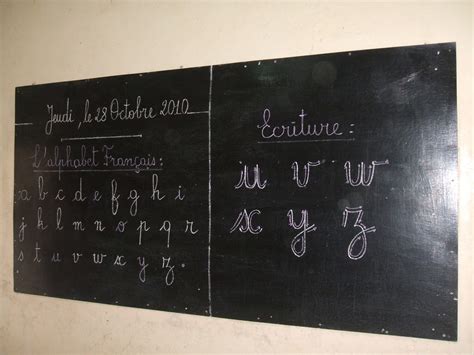 Jeudi, le 28 Octobre 2010
L'alphabet Français:
a b c d e f g h i
j k l m n o p q r
s t u v w x y z.
Ecriture:
u v w
x y z